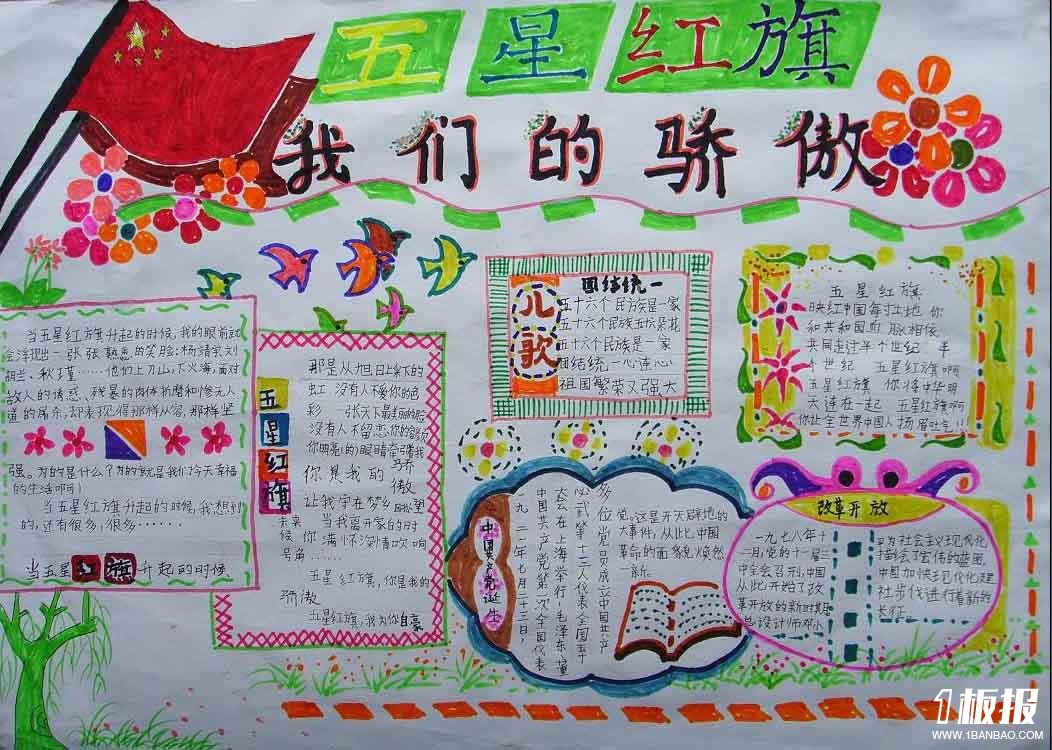 五星红旗
我们的骄傲
当五星红旗升起的时候,我的眼前就
会浮现出一张张熟悉的笑脸:杨靖宇、刘
胡兰、秋瑾……他们上刀山、下火海,面对
敌人的诱惑、残暴的肉体折磨和惨无人
道的屠杀,却表现得那样从容,那样坚
强。为的是什么?为的就是我们今天幸福
的生活啊!
当五星红旗升起的时候,我想到
的,还有很多,很多……
当五星红旗升起的时候
五星红旗
那是从旭日上采下的
虹 没有人不爱你的色
彩 一张天下最美丽的脸
没有人不留恋你的容颜
你明亮的眼睛牵引着我
你是我的骄傲
让我守在梦乡眺望
未来 当我离开家的时
候 你满怀深情吹响
号角……
五星红旗,你是我的
骄傲
五星红旗,我为你自豪
儿歌
团结统一
五十六个民族是一家
五十六个民族五十六朵花
五十六个民族是一家
团结统一心连心
祖国繁荣又强大
五星红旗
映红中国每寸土地 你
和共和国血脉相依
共同走过半个世纪 半
个世纪 五星红旗啊
五星红旗 你将中华明
天连在一起 五星红旗啊
你让全世界中国人扬眉吐气!!!
中国共产党诞生
一九二一年七月二十三日,
中国共产党第一次全国代表
大会在上海举行,毛泽东、董
必武等十三人代表全国五十
多位党员成立中国共产
党。这是开天辟地的
大事件,从此,中国
革命的面貌焕然
一新。
改革开放
一九七八年十
二月,党的十一届三
中全会召开,中国
从此开始了改
革开放的新时期,总
设计师邓小
平为社会主义现代化
描绘了宏伟的蓝图,
中国加快现代化建
设步伐进行着新的
长征。
1板报
WWW.1BANBAO.COM